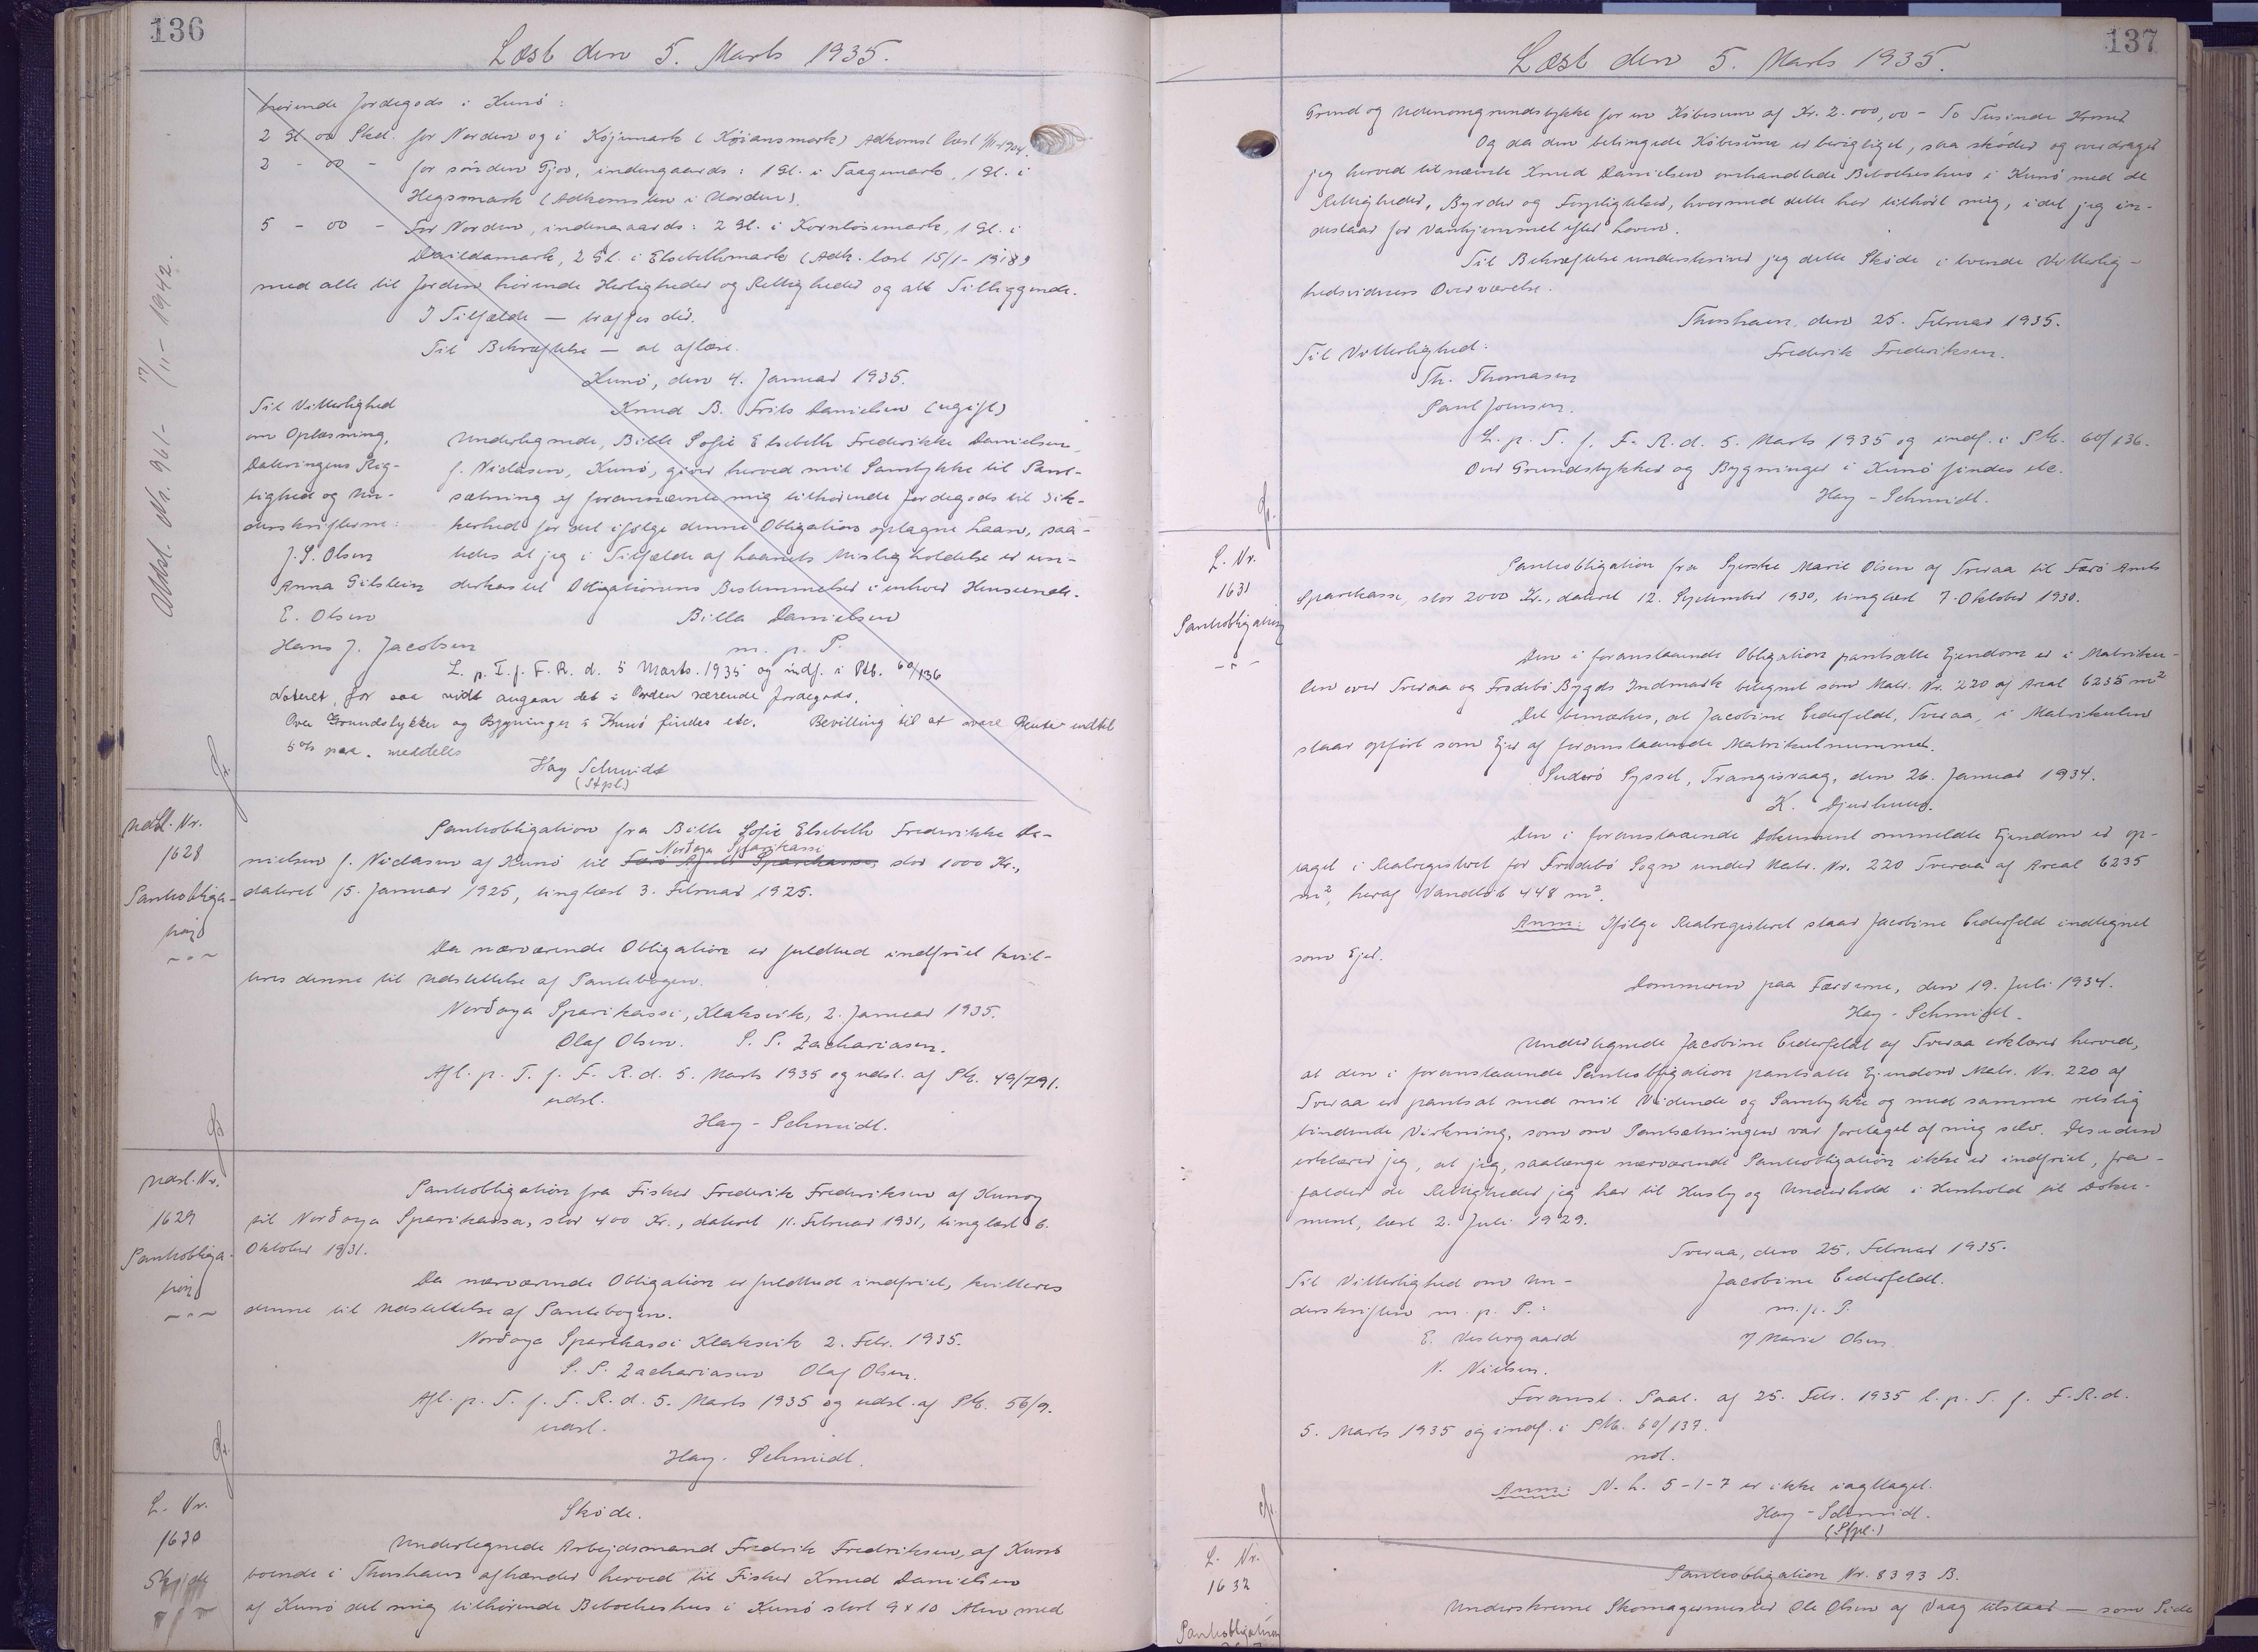 136
Læst den 5. Marts 1935.
hørende Jordegods i Kunø:
2 Gl. 00 Skd. for Norden og i Køjumark (Køiansmark) Adkomst læst
2 - 00 - for sønden Gjov, indengaards: 1 Gl. i Taagmark, 1 Gl. i
Hegsmark (Adkomsten i Norden).
5 - 00 - For Norden, indengaards: 2 Gl. i Kornlosemark, 1 Gl. i
Davidamark, 2 Gl. i Elsebethmark (Adk. læst 15/1-
med alle til Jorden hørende Herligheder og Rettigheder og alt Tilliggende.
I Tilfælde — træffes der.
Til Bekræftelse — at aflæse.
Kunø, den 4. Januar 1935.
Til Vitterlighed Knud B. Frits Danielsen (ugift)
om Oplæsning, Undertegnede, Bille Sofie Elsebeth Frederikke Danielsen
Dateringens Rig- f. Niclasen, Kunø, giver herved mit Samtykke til Pant-
tighed og Un- sætning af forannævnte mig tilhørende Jordegods til Sik-
derskrifterne: kerhed for det ifølge denne Obligation optagne Laan, saa-
J. P. Olsen ledes at jeg i Tilfælde af Laanets Misligholdelse er un-
Anna Gilstein derkastet Obligationens Bestemmelser i enhver Henseende.
E. Olsen Billa Danielsen
Hans J. Jacobsen m. p. P.
L. p. T. f. F. R. d. 5 Marts. 1935 og indf. i Pb. 60/136
Noteret, for saa vidt angaar det i Norden værende Jordegods.
Over Grundstykker og Bygninger i Kunø findes etc. Bevilling til at svare Renter indtil
5% paa. meddeles
Hay Schmidt
(Stpl.)
Aflæst. Nr. 961- 17/11-1942.
Udsl. Nr.
1628
Pantobliga-
tion
Pantobligation fra Bille Sofie Elsebeth Frederikke Da-
Norðoya Sparikassi
nielsen f. Niclasen af Kunø til Færø Amts Sparekasse, stor 1000 Kr.,
dateret 15. Januar 1925, tinglæst 3. Februar 1925.
Da nærværende Obligation er fuldtud indfriet kvit-
teres denne til Udslettelse af Pantebogen.
Norðoya Sparikassi, Klaksvik, 2. Januar 1935.
Olaf Olsen. P. S. Zachariasen.
Afl. p. T. f. F. R. d. 5. Marts 1935 og udsl. af Pb. 49/791.
udsl.
Hay-Schmidt.
Udsl. Nr.
1629
Pantobliga-
tion
Pantobligation fra Fisker Frederik Frederiksen af Kunoy
til Norðoya Sparikassa, stor 400 Kr., dateret 11. Februar 1931, tinglæst 6.
Oktober 1931.
Da nærværende Obligation er fuldtud indfriet, kvitteres
denne til Udslettelse af Pantebogen.
Norðoya Sparikassi Klaksvik 2. Febr. 1935.
P. S. Zachariasen Olaf Olsen.
Afl. p. T. f. F. R. d. 5. Marts 1935 og udsl. af Pb. 56/9.
udsl.
Hay-Schmidt.
L. Nr.
1630
Skøde
Skøde.
Undertegnede Arbejdsmand Fredrik Fredriksen, af Kunø
boende i Thorshavn afhænder herved til Fisker Knud Danielsen
af Kunø det mig tilhørende Beboelseshus i Kunø stort 9 x 10 Alen med
137
Læst den 5. Marts 1935.
Grund og Udenomgrundstykke for en Købesum af Kr. 2.000,00 - To Tusinde Kroner
Og da den betingede Købesum er berigtiget, saa skøder og overdrager
jeg herved til nævnte Knud Danielsen omhandlede Beboelseshus i Kunø med de
Rettigheder, Byrder og Forpligtelser, hvormed dette har tilhørt mig, idet jeg in-
destaar for Vanhjemmel efter Loven.
Til Bekræftelse underskriver jeg dette Skøde i tvende Vitterlig-
hedsvidners Overværelse.
Thorshavn, den 25. Februar 1935.
Til Vitterlighed: Frederik Frederiksen.
Th. Thomasen
Paul Joensen.
L. p. T. f. F. R. d. 5. Marts 1935 og indf. i Pb. 60/136.
Over Grundstykker og Bygninger i Kunø findes etc.
Hay-Schmidt.
L. Nr.
1631
Pantobligation
Pantobligation fra Syerske Marie Olsen af Tveraa til Færø Amts
Sparekasse, stor 2000 Kr., dateret 12. September 1930, tinglæst 7. Oktober 1930.
Den i foranstaaende Obligation pantsatte Ejendom er i Matriku-
len over Tveraa og Frodebø Bygds Indmark betegnet som Matr. Nr. 220 af Areal 6235 m²
Det bemærkes, at Jacobine Cederfeldt, Tveraa, i Matrikulen
staar opført som Ejer af foranstaaende Matrikulnummer.
Suderø Syssel, Trangisvaag, den 26. Januar 1934.
K. Djurhuus.
Den i foranstaaende Dokument ommeldte Ejendom er op-
taget i Realregistret for Frodebø Sogn under Matr. Nr. 220 Tveraa af Areal 6235
m², heraf Vandløb 448 m².
Anm: Ifølge Realregistret staar Jacobine Cederfeld indtegnet
som Ejer.
Dommeren paa Færøerne, den 19. Juli 1934.
Hay-Schmidt.
Undertegnede Jacobine Cederfeldt af Tveraa erklærer herved,
at den i foranstaaende Pantobligation pantsatte Ejendom Matr. Nr. 220 af
Tveraa er pantsat med mit Vidende og Samtykke og med samme retslig
bindende Virkning, som om Pantsætningen var foretaget af mig selv. Desuden
erklærer jeg, at jeg, saalænge nærværende Pantobligation ikke er indfriet, fra-
falder de Rettigheder jeg har til Husly og Underhold i Henhold til Doku-
ment, læst 2. Juli 1929.
Tveraa, den 25. Februar 1935.
Til Vitterlighed om Un- Jacobine Cederfeldt.
derskriften m. p. P.: m. p. P.
E. Vestergaard Marie Olsen
N. Nielsen.
Foranst. Paat. af 25. Febr. 1935 l. p. T. f. F. R. d.
5. Marts 1935 og indf. i Pb. 60/137.
not.
Anm: N. L. 5-1-7 er ikke iagttaget.
Hay-Schmidt.
(Stpl.)
L. Nr.
1632
Pantobligation
Pantobligation Nr. 8393 B.
Underskrevne Skomagermester Ole Olsen af Vaag tilstaar — som Side